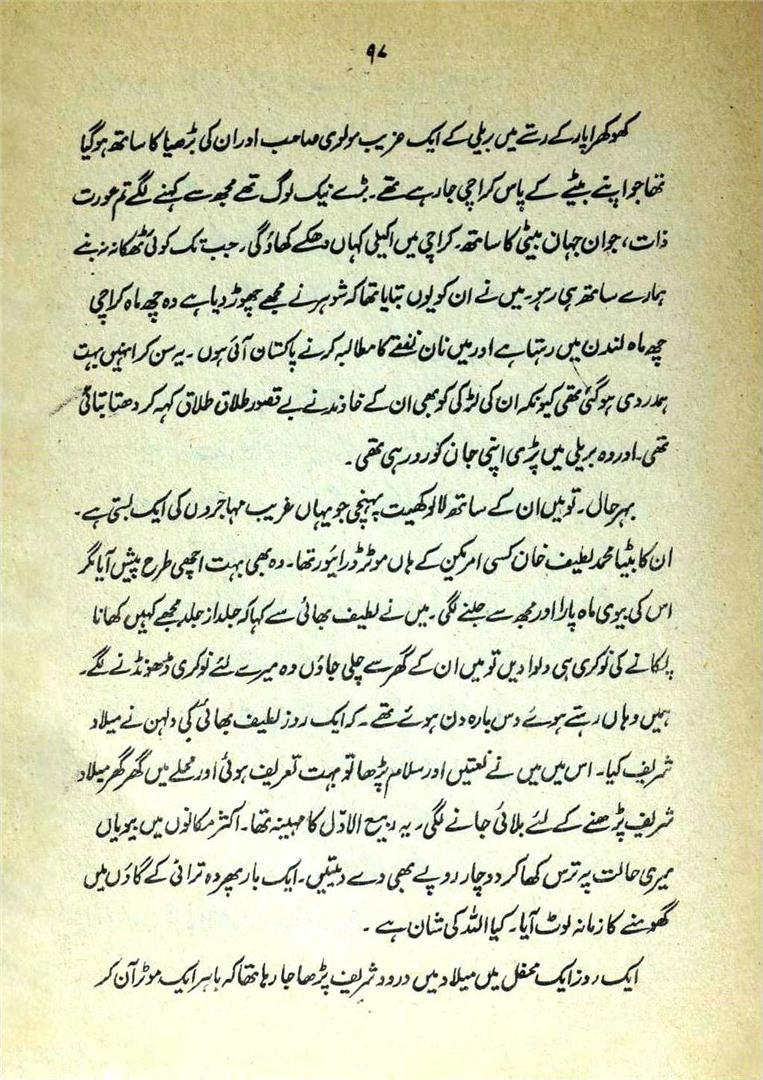 ۹۷
کھوکھراپار کے رستے میں بریلی کے ایک غریب مولوی صاحب اور ان کی بڑھیا کا ساتھ ہو گیا
تھا جو اپنے بیٹے کے پاس کراچی جا رہے تھے۔ بڑے نیک لوگ تھے مجھ سے کہنے لگے تم عورت
ذات، جوان جہان بیٹی کا ساتھ۔ کراچی میں اکیلی کہاں دھکے کھاؤ گی۔ جب تک کوئی ٹھکانہ نہ بنے
ہمارے ساتھ ہی رہو۔ میں نے ان کو یوں بتایا تھا کہ شوہر نے مجھے چھوڑ دیا ہے وہ چھ ماہ کراچی
چھ ماہ لندن میں رہتا ہے اور میں نان نفقے کا مطالبہ کرنے پاکستان آئی ہوں۔ یہ سن کر انہیں بہت
ہمدردی ہو گئی تھی کیونکہ ان کی لڑکی کو بھی ان کے خاوند نے بے قصور طلاق طلاق کہہ کر دھتا بتائی
تھی۔ اور وہ بریلی میں پڑی اپنی جان کو رو رہی تھی۔
بہر حال۔ تو میں ان کے ساتھ لالو کھیت پہنچی جو یہاں غریب مہاجروں کی ایک بستی ہے۔
ان کا بیٹا محمد لطیف خان کسی امریکن کے ہاں موٹر ڈرائیور تھا۔ وہ بھی بہت اچھی طرح پیش آیا مگر
اس کی بیوی ماہ پارا اور مجھ سے جلنے لگی۔ میں نے لطیف بھائی سے کہا کہ جلد از جلد مجھے کہیں کھانا
پکانے کی نوکری ہی دلوا دیں تو میں ان کے گھر سے چلی جاؤں وہ میرے لئے نوکری ڈھونڈنے لگے۔
ہمیں وہاں رہتے ہوئے دس بارہ دن ہوئے تھے۔ کہ ایک روز لطیف بھائی کی دلہن نے میلاد
شریف کیا۔ اس میں میں نے نعتیں اور سلام پڑھا تو بہت تعریف ہوئی اور محلے میں گھر گھر میلاد
شریف پڑھنے کے لئے بلائی جانے لگی۔ یہ ربیع الاوّل کا مہینہ تھا۔ اکثر مکانوں میں بیویاں
میری حالت پہ ترس کھا کر دو چار روپے بھی دے دیتیں۔ ایک بار پھر وہ ترائی کے گاؤں میں
گھومنے کا زمانہ لوٹ آیا۔ کیا اللہ کی شان ہے۔
ایک روز ایک محفل میں میلاد میں درود شریف پڑھا جا رہا تھا کہ باہر ایک موٹر آن کر